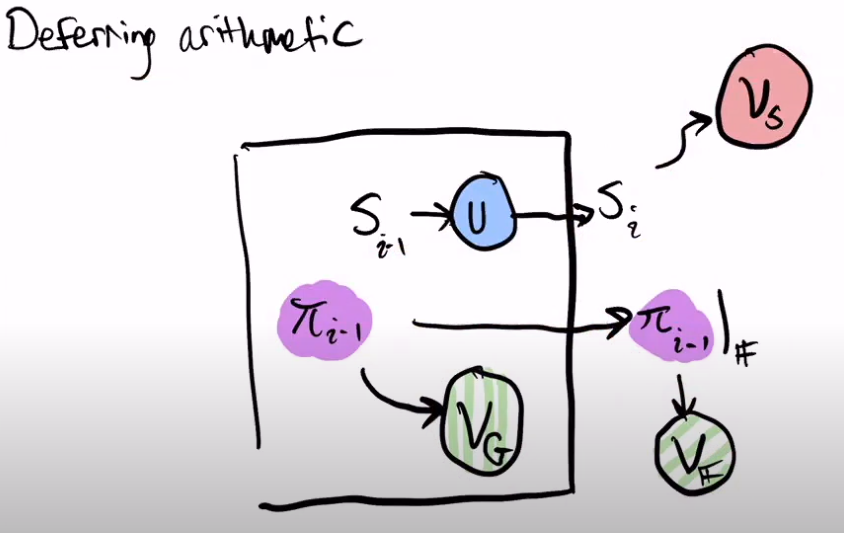 Deferring arithmetic
V_S
S_{i-1} → U → S_i
π_{i-1} → π_{i-1}|_𝔽
V_G
V_𝔽